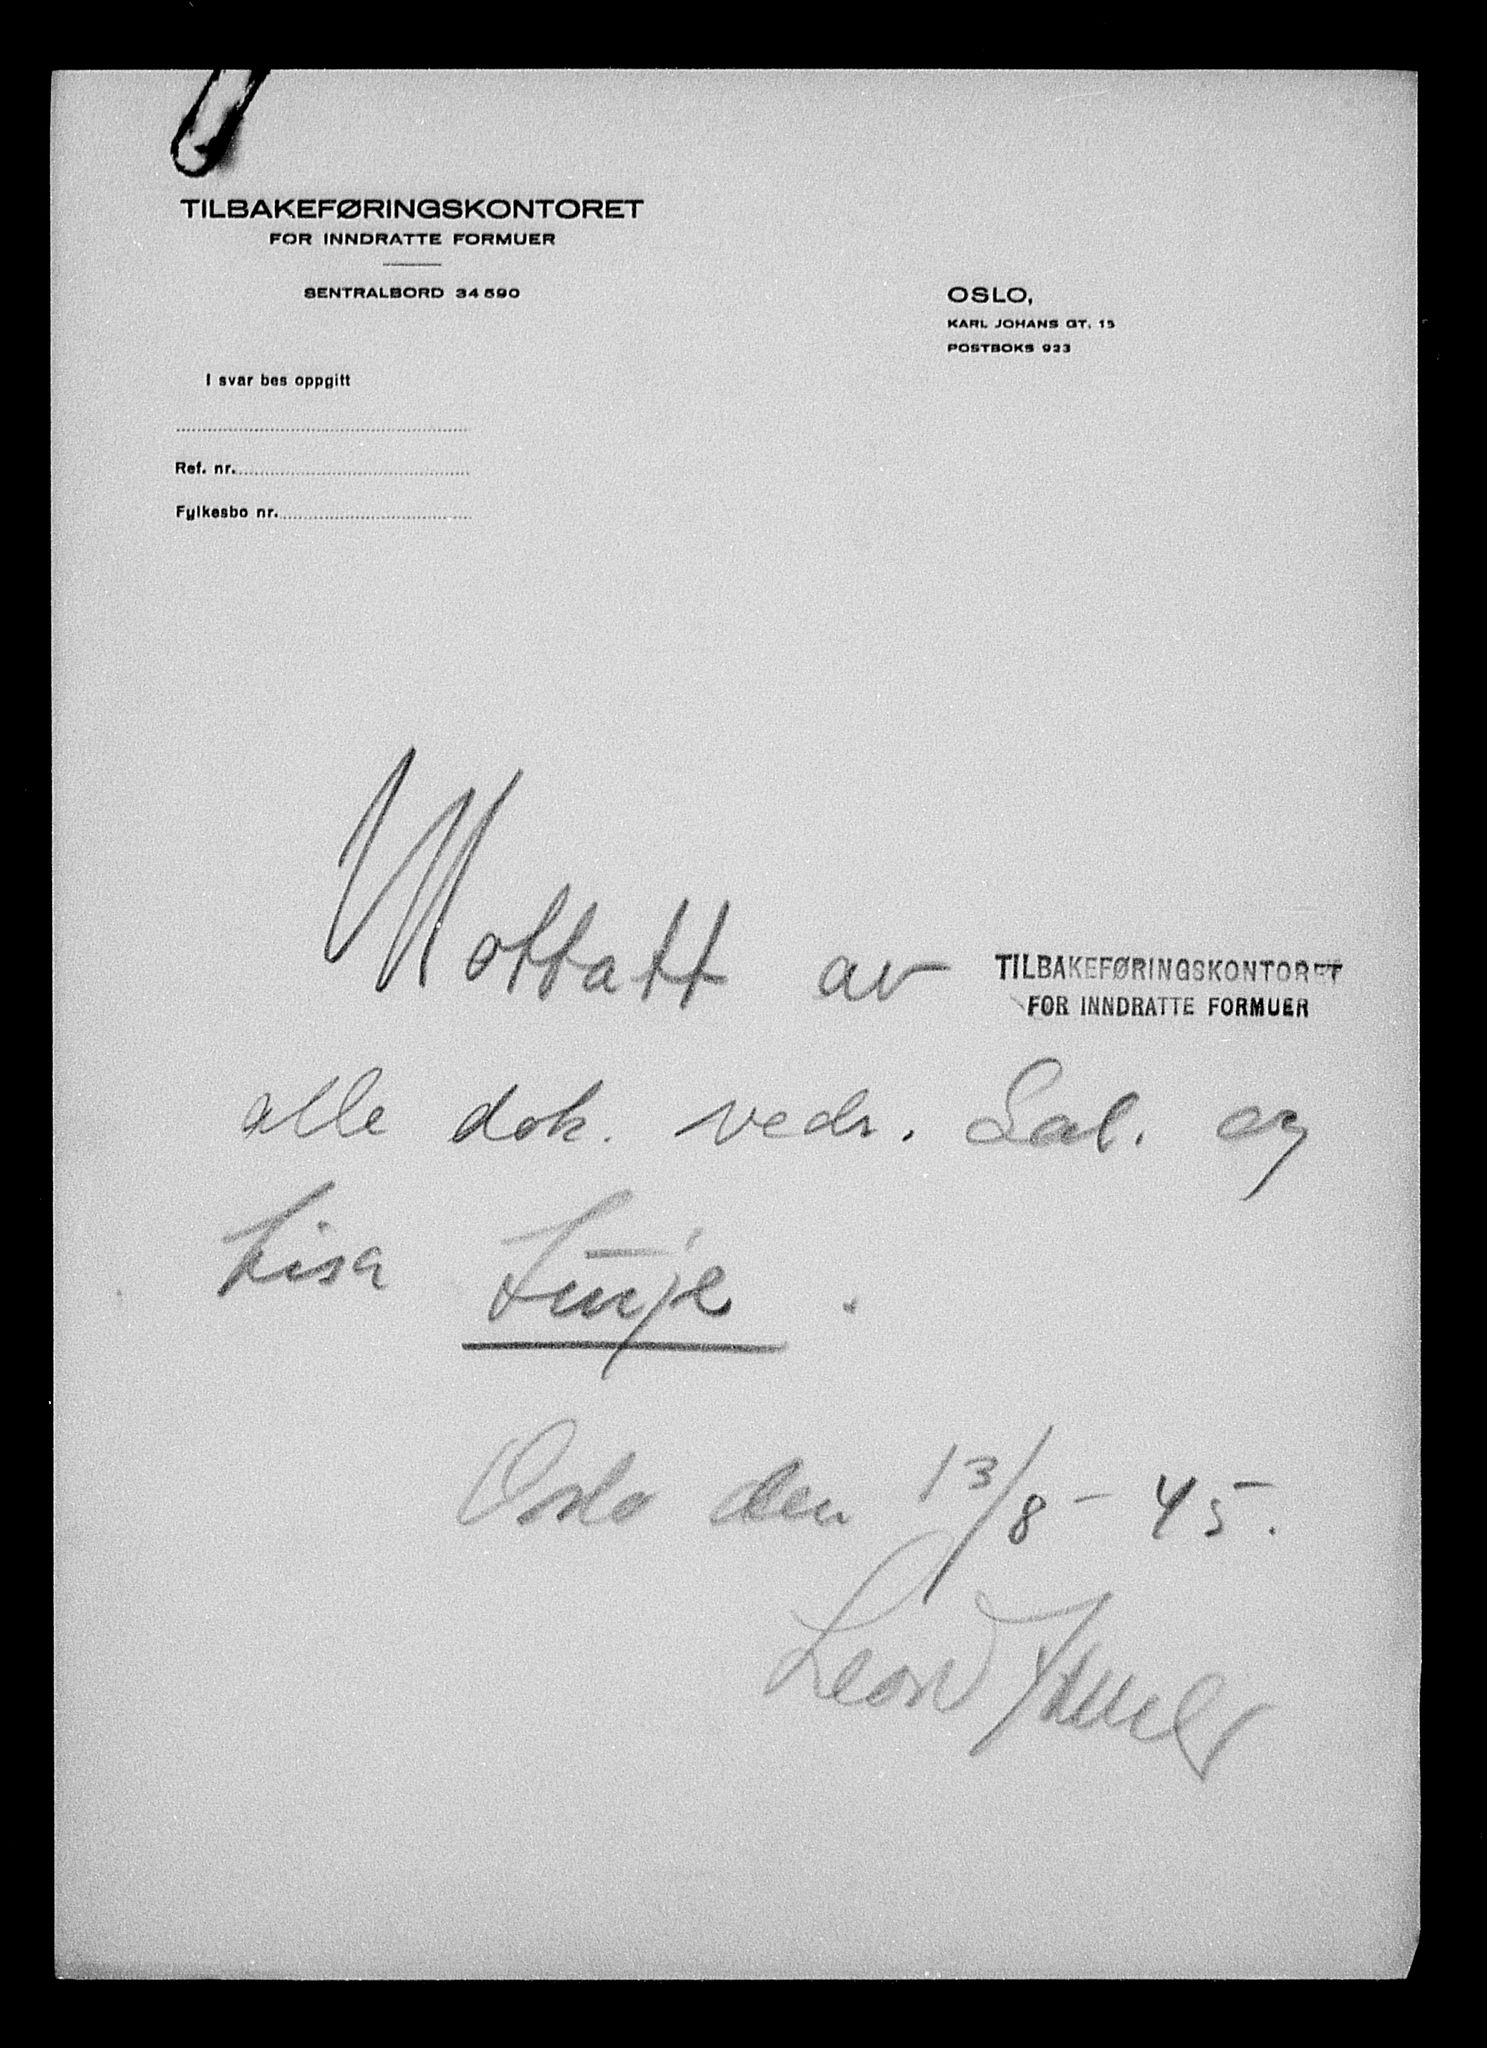 TILBAKEFØRINGSKONTORET
FOR INNDRATTE FORMUER
SENTRALBORD 34590
OSLO,
KARL JOHANS GT. 15
POSTBOKS 923
I svar bes oppgitt
Ref. nr.
Fylkesbo nr.
Mottatt av TILBAKEFØRINGSKONTORET
FOR INNDRATTE FORMUER
alle dok. vedr. Sal. og
Lisa
Oslo den 13/8 - 45.